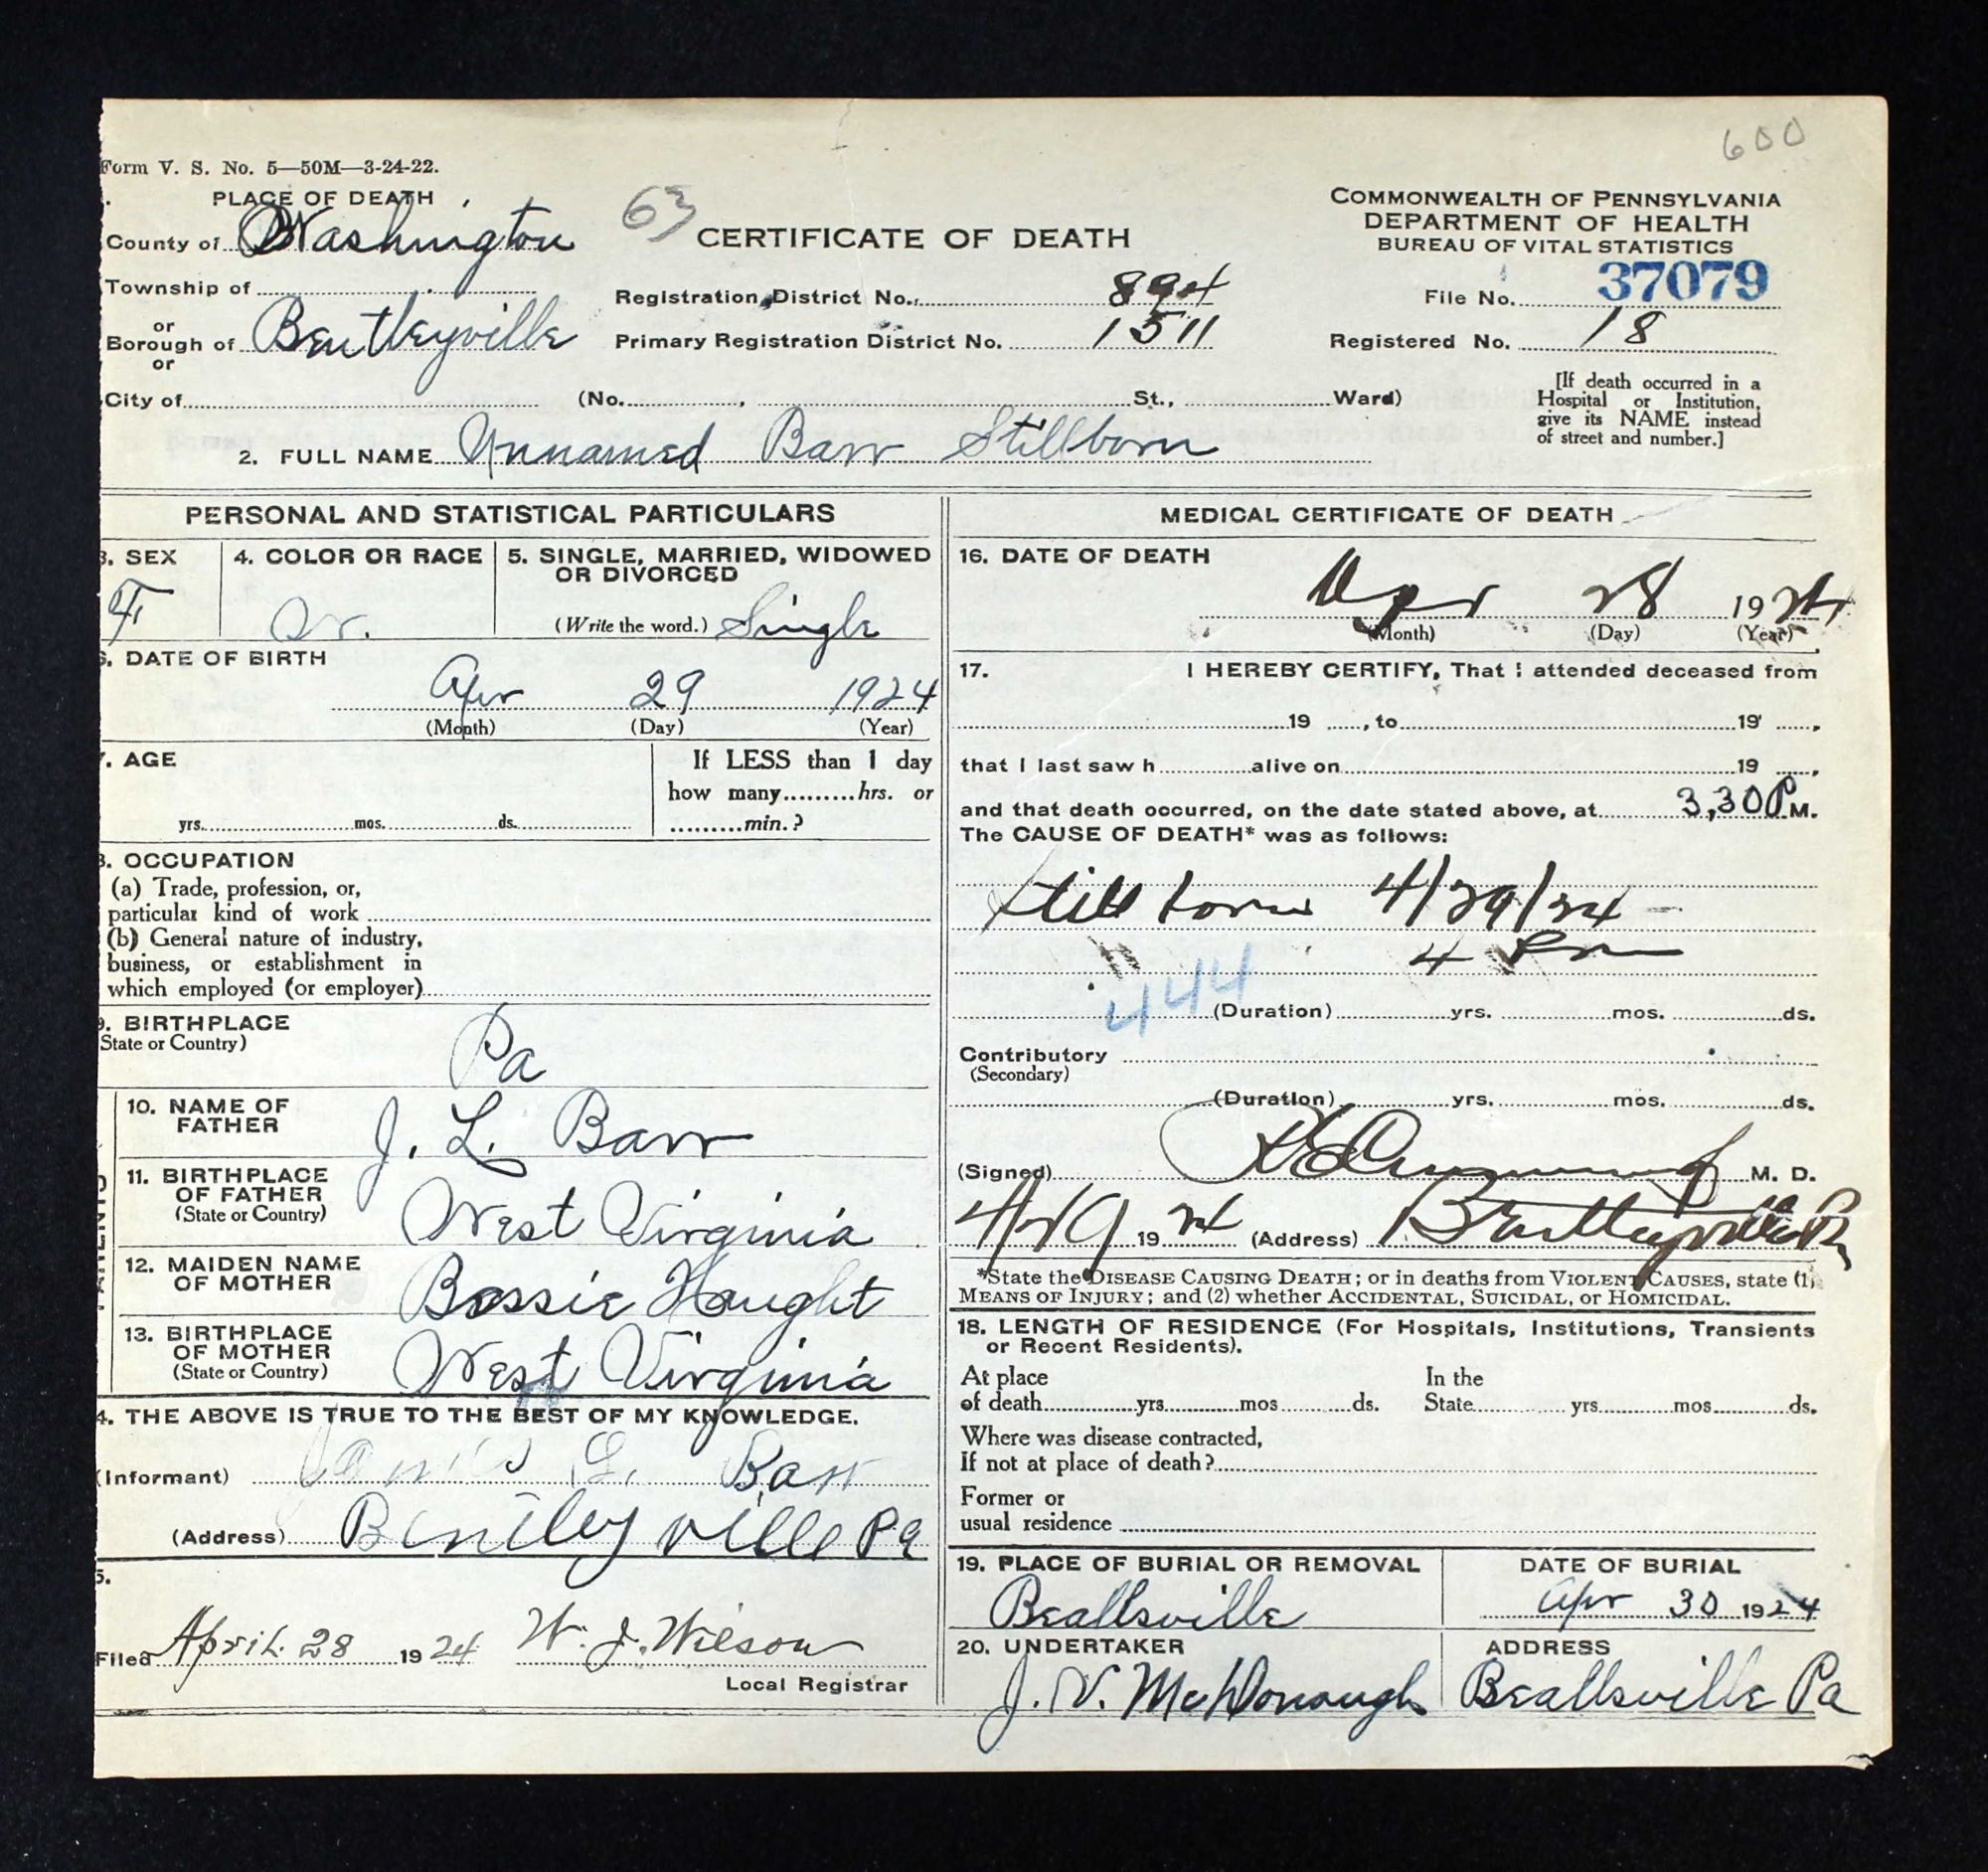 600
Form V. S. No. 5—50M—3-24-22.
PLACE OF DEATH
County of Washington
63
CERTIFICATE OF DEATH
COMMONWEALTH OF PENNSYLVANIA
DEPARTMENT OF HEALTH
BUREAU OF VITAL STATISTICS
Township of
Registration District No. 894
File No. 37079
or
Borough of Bentleyville
Primary Registration District No. 1511
Registered No. 18
or
City of (No. , St., Ward)
[If death occurred in a
Hospital or Institution,
give its NAME instead
of street and number.]
2. FULL NAME Unnamed Barr Stillborn
PERSONAL AND STATISTICAL PARTICULARS
3. SEX
F
4. COLOR OR RACE
W.
5. SINGLE, MARRIED, WIDOWED
OR DIVORCED
(Write the word.) Single
6. DATE OF BIRTH
Apr 29 1924
(Month) (Day) (Year)
7. AGE
yrs. mos. ds.
If LESS than 1 day
how many hrs. or
min.?
8. OCCUPATION
(a) Trade, profession, or,
particular kind of work
(b) General nature of industry,
business, or establishment in
which employed (or employer)
9. BIRTHPLACE
State or Country)
Pa
PARENTS
10. NAME OF
FATHER
J. L. Barr
11. BIRTHPLACE
OF FATHER
(State or Country)
West Virginia
12. MAIDEN NAME
OF MOTHER
Bessie Haught
13. BIRTHPLACE
OF MOTHER
(State or Country)
West Virginia
4. THE ABOVE IS TRUE TO THE BEST OF MY KNOWLEDGE.
(Informant) L. Barr
(Address) Bentleyville Pa
5.
Filed April 28 1924 W. J. Wilson
Local Registrar
MEDICAL CERTIFICATE OF DEATH
16. DATE OF DEATH
Apr 28 1924
(Month) (Day) (Year)
17. I HEREBY CERTIFY, That I attended deceased from
19 , to 19 ,
that I last saw h alive on 19 ,
and that death occurred, on the date stated above, at 3,30 P M.
The CAUSE OF DEATH* was as follows:
Still born 4/29/24
4 Pm
444
(Duration) yrs. mos. ds.
Contributory
(Secondary)
(Duration) yrs. mos. ds.
(Signed) M. D.
4/29 1924 (Address) Bentleyville Pa
*State the DISEASE CAUSING DEATH; or in deaths from VIOLENT CAUSES, state (1)
MEANS OF INJURY; and (2) whether ACCIDENTAL, SUICIDAL, or HOMICIDAL.
18. LENGTH OF RESIDENCE (For Hospitals, Institutions, Transients
or Recent Residents).
At place
of death yrs mos ds.
In the
State yrs mos ds.
Where was disease contracted,
If not at place of death?
Former or
usual residence
19. PLACE OF BURIAL OR REMOVAL
Beallsville
DATE OF BURIAL
Apr 30 1924
20. UNDERTAKER
J. V. McDonough
ADDRESS
Beallsville Pa